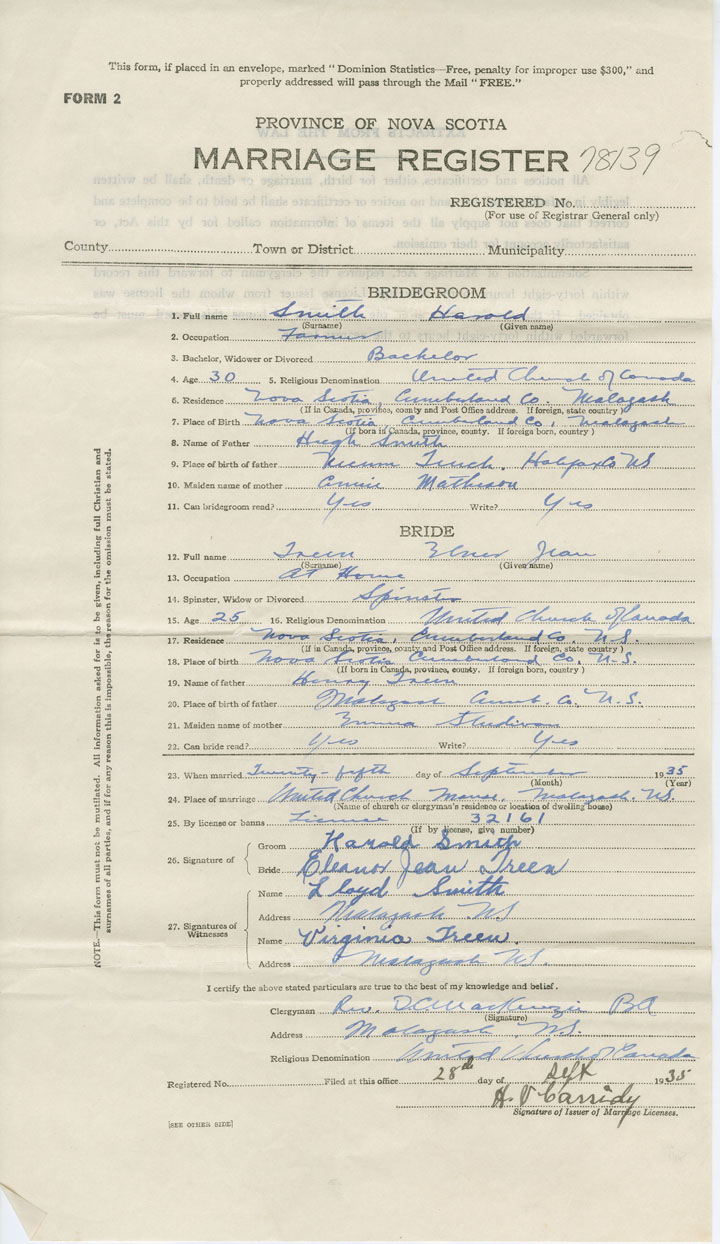 This form, if placed in an envelope, marked "Dominion Statistics—Free, penalty for improper use $300," and
properly addressed will pass through the Mail "FREE."
FORM 2
PROVINCE OF NOVA SCOTIA
MARRIAGE REGISTER 78139
REGISTERED No.
(For use of Registrar General only)
County Town or District Municipality
BRIDEGROOM
1. Full name Smith Harold
(Surname) (Given name)
2. Occupation Farmer
3. Bachelor, Widower or Divorced Bachelor
4. Age 30 5. Religious Denomination United Church of Canada
6. Residence Nova Scotia, Cumberland Co, Malagash
(If in Canada, province, county and Post Office address. If foreign, state country)
7. Place of Birth Nova Scotia Cumberland Co, Malagash
(If born in Canada, province, county. If foreign born, country)
8. Name of Father Hugh Smith
9. Place of birth of father Necum Teuch, Halifax Co NS
10. Maiden name of mother Annie Matheson
11. Can bridegroom read? Yes Write? Yes
BRIDE
12. Full name Treen Elner Jean
(Surname) (Given name)
13. Occupation At Home
14. Spinster, Widow or Divorced Spinster
15. Age 25 16. Religious Denomination United Church of Canada
17. Residence Nova Scotia, Cumberland Co, N.S.
(If in Canada, province, county and Post Office address. If foreign, state country)
18. Place of birth Nova Scotia Cumberland Co, N.S.
(If born in Canada, province, county. If foreign born, country)
19. Name of father Henry Treen
20. Place of birth of father Malagash Cumb. Co, N.S.
21. Maiden name of mother Emma
22. Can bride read? Yes Write? Yes
23. When married Twenty-fifth day of September 1935
(Month) (Year)
24. Place of marriage United Church Manse, Malagash, NS.
(Name of church or clergyman's residence or location of dwelling house)
25. By license or banns License 32161
(If by license, give number)
26. Signature of Groom Harold Smith
Bride Eleanor Jean Treen
27. Signatures of Witnesses Name Lloyd Smith
Address Malagash NS
Name Virginia Treen.
Address Malagash NS.
I certify the above stated particulars are true to the best of my knowledge and belief.
Clergyman Rev. D.C. MacKenzie BA
(Signature)
Address Malagash N.S.
Religious Denomination United Church of Canada
Registered No. Filed at this office 28th day of Sept 1935
H. V Cassidy
Signature of Issuer of Marriage Licenses.
[SEE OTHER SIDE]
NOTE.—This form must not be mutilated. All information asked for is to be given, including full Christian and
surnames of all parties, and if for any reason this is impossible, the reason for the omission must be stated.